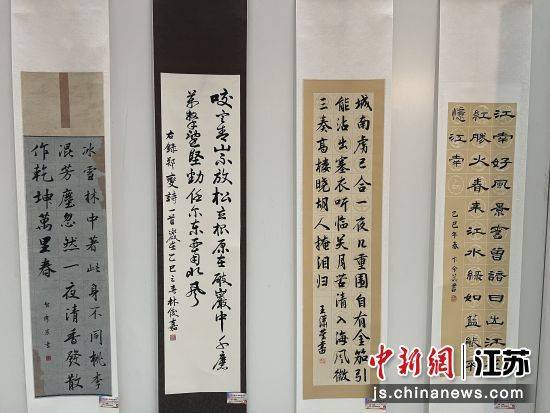 冰雪林中著此身不同桃李
混芳塵忽然一夜清香發散
作乾坤萬里春
咬定青山不放松立根原在破巖中千磨
萬擊還堅勁任尔东西南北风
右錄郑燮詩一首歲在乙巳之春林俊嘉
城南虏已合一夜几重围自有金笳引
能沾出塞衣听临关月苦清入海风微
三奏高楼晓胡人掩泪归
江南好風景舊曾諳日出江
紅勝火春來江水綠如藍能
憶江南
乙巳年春
中新網 江苏
js.chinanews.com.cn